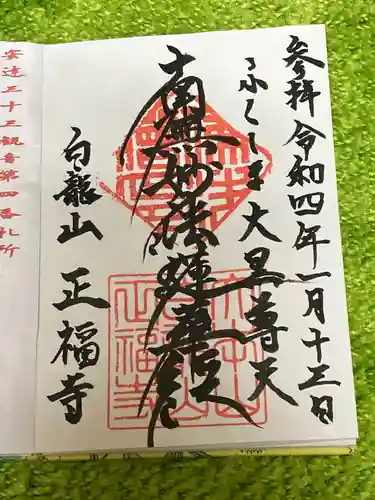 参拝 令和四年一月十三日
ふくしま大黒尊天
南無妙法蓮華経
白龍山 正福寺
安達三十三観音第四番札所